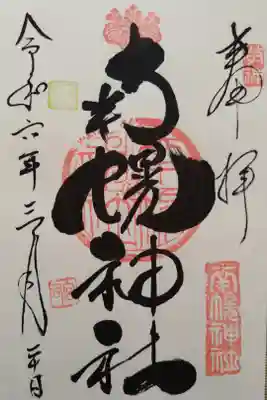 奉拝
南幌神社
南幌神社
令和六年三月二十日